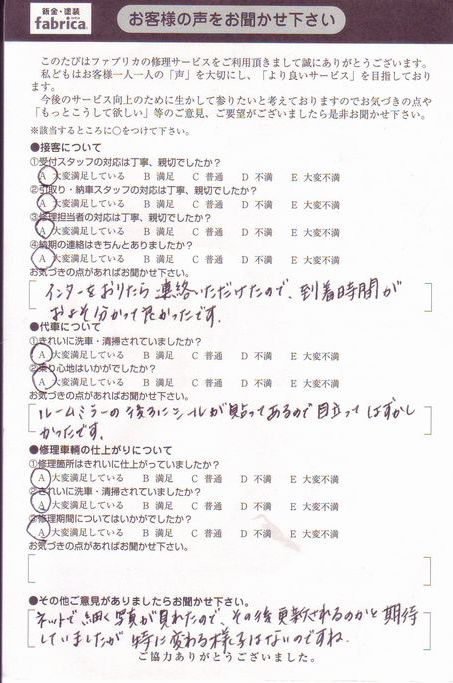 鈑金・塗装
fabrica.
お客様の声をお聞かせ下さい
このたびはファブリカの修理サービスをご利用頂きまして誠にありがとうございます。
私どもはお客様一人一人の「声」を大切にし、「より良いサービス」を目指しており
ます。
今後のサービス向上のために生かして参りたいと考えておりますのでお気づきの点や
「もっとこうして欲しい」等のご意見、ご要望がございましたら是非お聞かせ下さい。
※該当するところに○をつけて下さい。
●接客について
①受付スタッフの対応は丁寧、親切でしたか?
A 大変満足している B 満足 C 普通 D 不満 E 大変不満
②引取り・納車スタッフの対応は丁寧、親切でしたか?
A 大変満足している B 満足 C 普通 D 不満 E 大変不満
③修理担当者の対応は丁寧、親切でしたか?
A 大変満足している B 満足 C 普通 D 不満 E 大変不満
④納期の連絡はきちんとありましたか?
A 大変満足している B 満足 C 普通 D 不満 E 大変不満
お気づきの点があればお聞かせ下さい。
インターをおりたら連絡いただけたので、到着時間が
およそ分かって良かったです。
●代車について
①きれいに洗車・清掃されていましたか?
A 大変満足している B 満足 C 普通 D 不満 E 大変不満
②乗り心地はいかがでしたか?
A 大変満足している B 満足 C 普通 D 不満 E 大変不満
お気づきの点があればお聞かせ下さい。
ルームミラーの後ろにシールが貼ってあるので目立ってはずかし
かったです。
●修理車輌の仕上がりについて
①修理箇所はきれいに仕上がっていましたか?
A 大変満足している B 満足 C 普通 D 不満 E 大変不満
②きれいに洗車・清掃されていましたか?
A 大変満足している B 満足 C 普通 D 不満 E 大変不満
③修理期間についてはいかがでしたか?
A 大変満足している B 満足 C 普通 D 不満 E 大変不満
お気づきの点があればお聞かせ下さい。
●その他ご意見がありましたらお聞かせ下さい。
ネットで細く写真が見れたので、その後更新されるのかと期待
していましたが特に変わる様子はないのですね。
ご協力ありがとうございました。